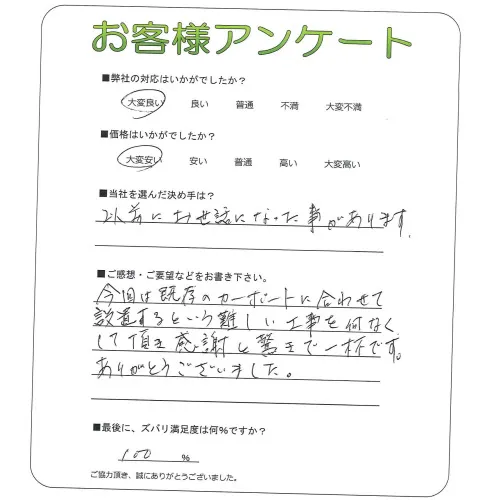 お客様アンケート
■弊社の対応はいかがでしたか?
大変良い 良い 普通 不満 大変不満
■価格はいかがでしたか?
大変安い 安い 普通 高い 大変高い
■当社を選んだ決め手は?
以前にお世話になった事があります。
■ご感想・ご要望などをお書き下さい。
今回は既存のカーポートに合わせて
設置するという難しい工事を何なく
して頂き感謝と驚きで一杯です。
ありがとうございました。
■最後に、ズバリ満足度は何%ですか?
100 %
ご協力頂き、誠にありがとうございました。